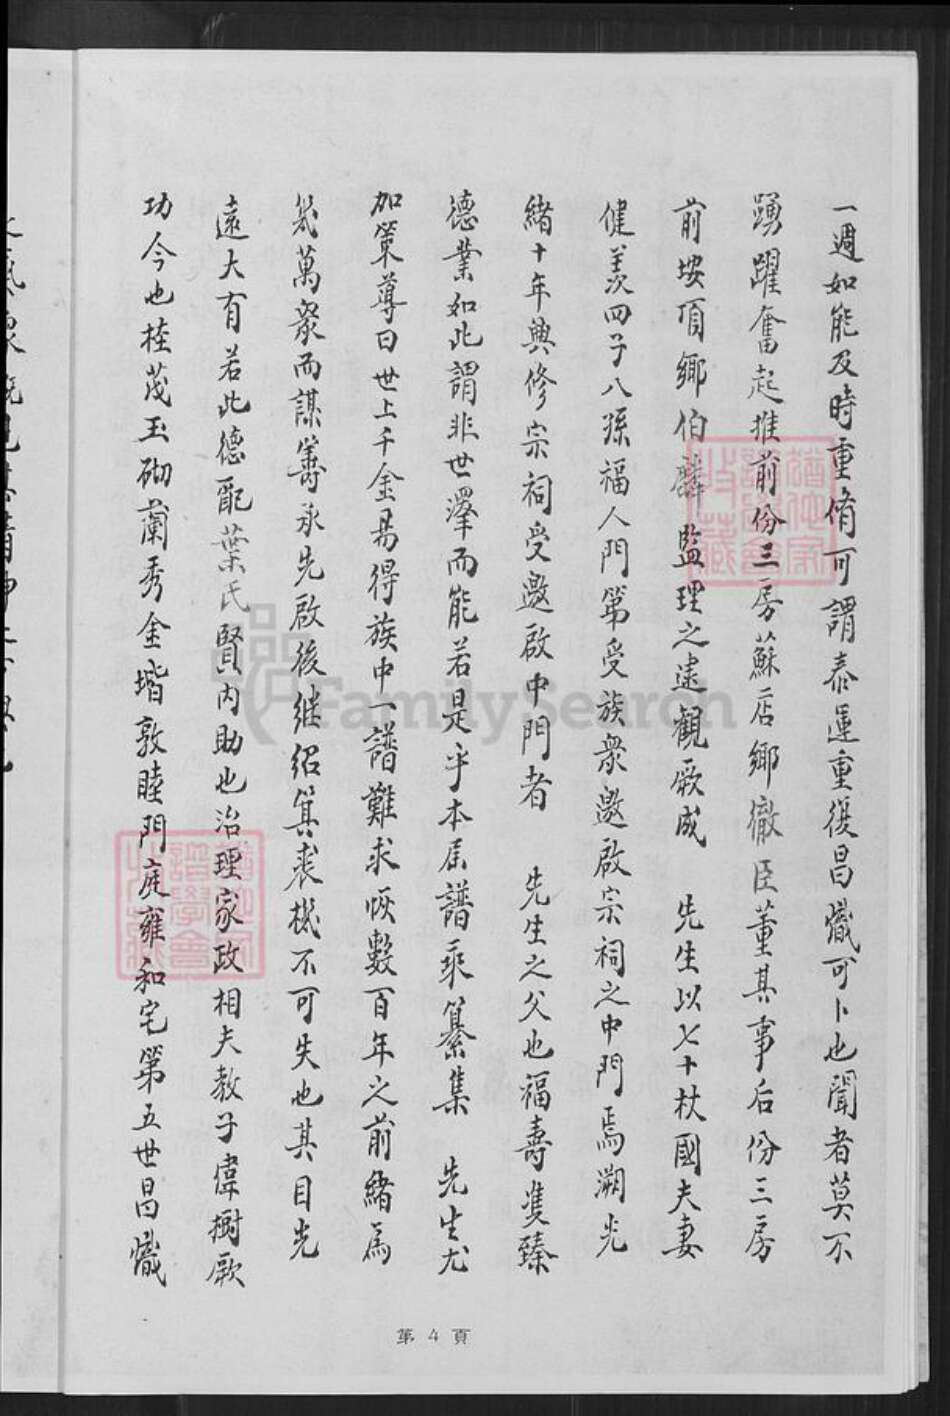 一週如能及時重脩可謂泰運重復昌熾可卜也聞者莫不
踴躍奮起推前份三房蘇店鄉徹臣董其事后份三房
前垵項鄉伯麟監理之逮觀厥成 先生以七十杖國夫妻
健羨四子八孫福人門第受族衆邀啟宗祠之中門焉溯光
緒十年興修宗祠受邀啟中門者 先生之父也福壽雙臻
德業如此謂非世澤而能若是乎本届譜乘纂集 先生尤
加策尊曰世上千金易得族中一譜難求恢數百年之前緒為
幾萬衆而謀籌承先啟後继绍箕裘機不可失也其目光
遠大有若此德配葉氏賢内助也治理家政相夫教子偉樹厥
功今也桂茂玉砌蘭秀金堦敦睦門庭雍和宅第五世昌熾
第 4 頁
FamilySearch
譜學會
收藏